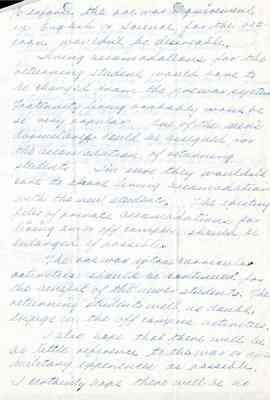 the pre-war requirement
in English or Science, for the vet-
eran wouldn't be desirable.
Living accomodations for the
returning student would have to
be changed from the prewar system
Fraternity living probably won't be
so very popular. One of the men's
dormitories could be assigned for
the accomodation of returning
students. I'm sure they wouldn't
care to share living accomodations
with the new students. The existing
of private accomodations for
living on or off campus should be
enlarged if possible.
The pre war extracurricular
activities should be continued for
the benefit of the new students. The
returning students will no doubt
engage in the off campus activities.
I also hope that there will be
as little reference to the war or
military experiences as possible.
I certainly hope there will be no